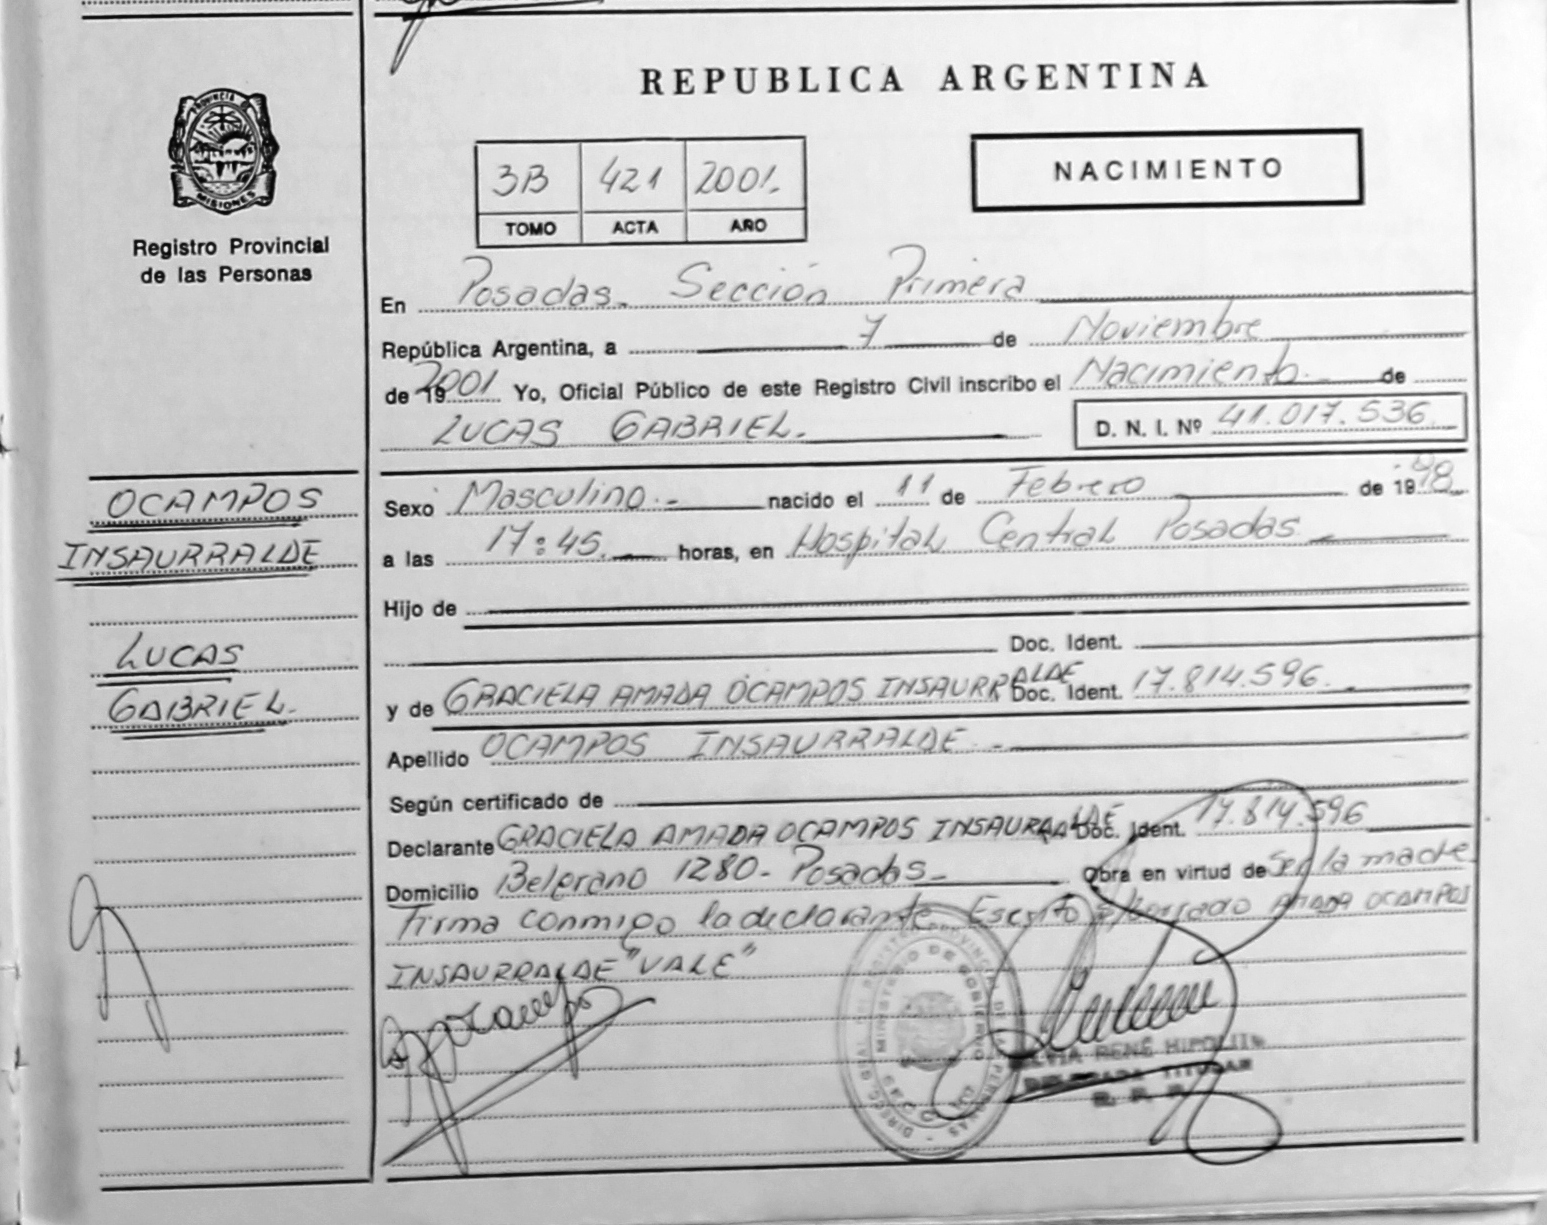 REPUBLICA ARGENTINA
PROVINCIA DE
MISIONES
Registro Provincial
de las Personas
3B 421 2001.
TOMO ACTA AÑO
NACIMIENTO
En Posadas. Sección Primera
República Argentina, a 7 de Noviembre
de 19 2001 Yo, Oficial Público de este Registro Civil inscribo el Nacimiento de
LUCAS GABRIEL. D. N. I. Nº 41.017.536.
OCAMPOS
INSAURRALDE
LUCAS
GABRIEL.
Sexo Masculino.- nacido el 11 de Febrero de 1998
a las 17:45. horas, en Hospital Central Posadas
Hijo de
Doc. Ident.
y de GRACIELA AMADA OCAMPOS INSAURRALDE Doc. Ident. 17.814.596.
Apellido OCAMPOS INSAURRALDE.-
Según certificado de
Declarante GRACIELA AMADA OCAMPOS INSAURRALDE Doc. Ident. 17.814.596
Domicilio Belgrano 1280- Posadas- Obra en virtud de Ser la madre
Firma conmigo la declarante. Escrito s/borrado AMADA OCAMPOS
INSAURRALDE "VALE"
MINISTERIO DE GOBIERNO
RENE HIPOLITO
DELEGADA TITULAR
R. P. P.